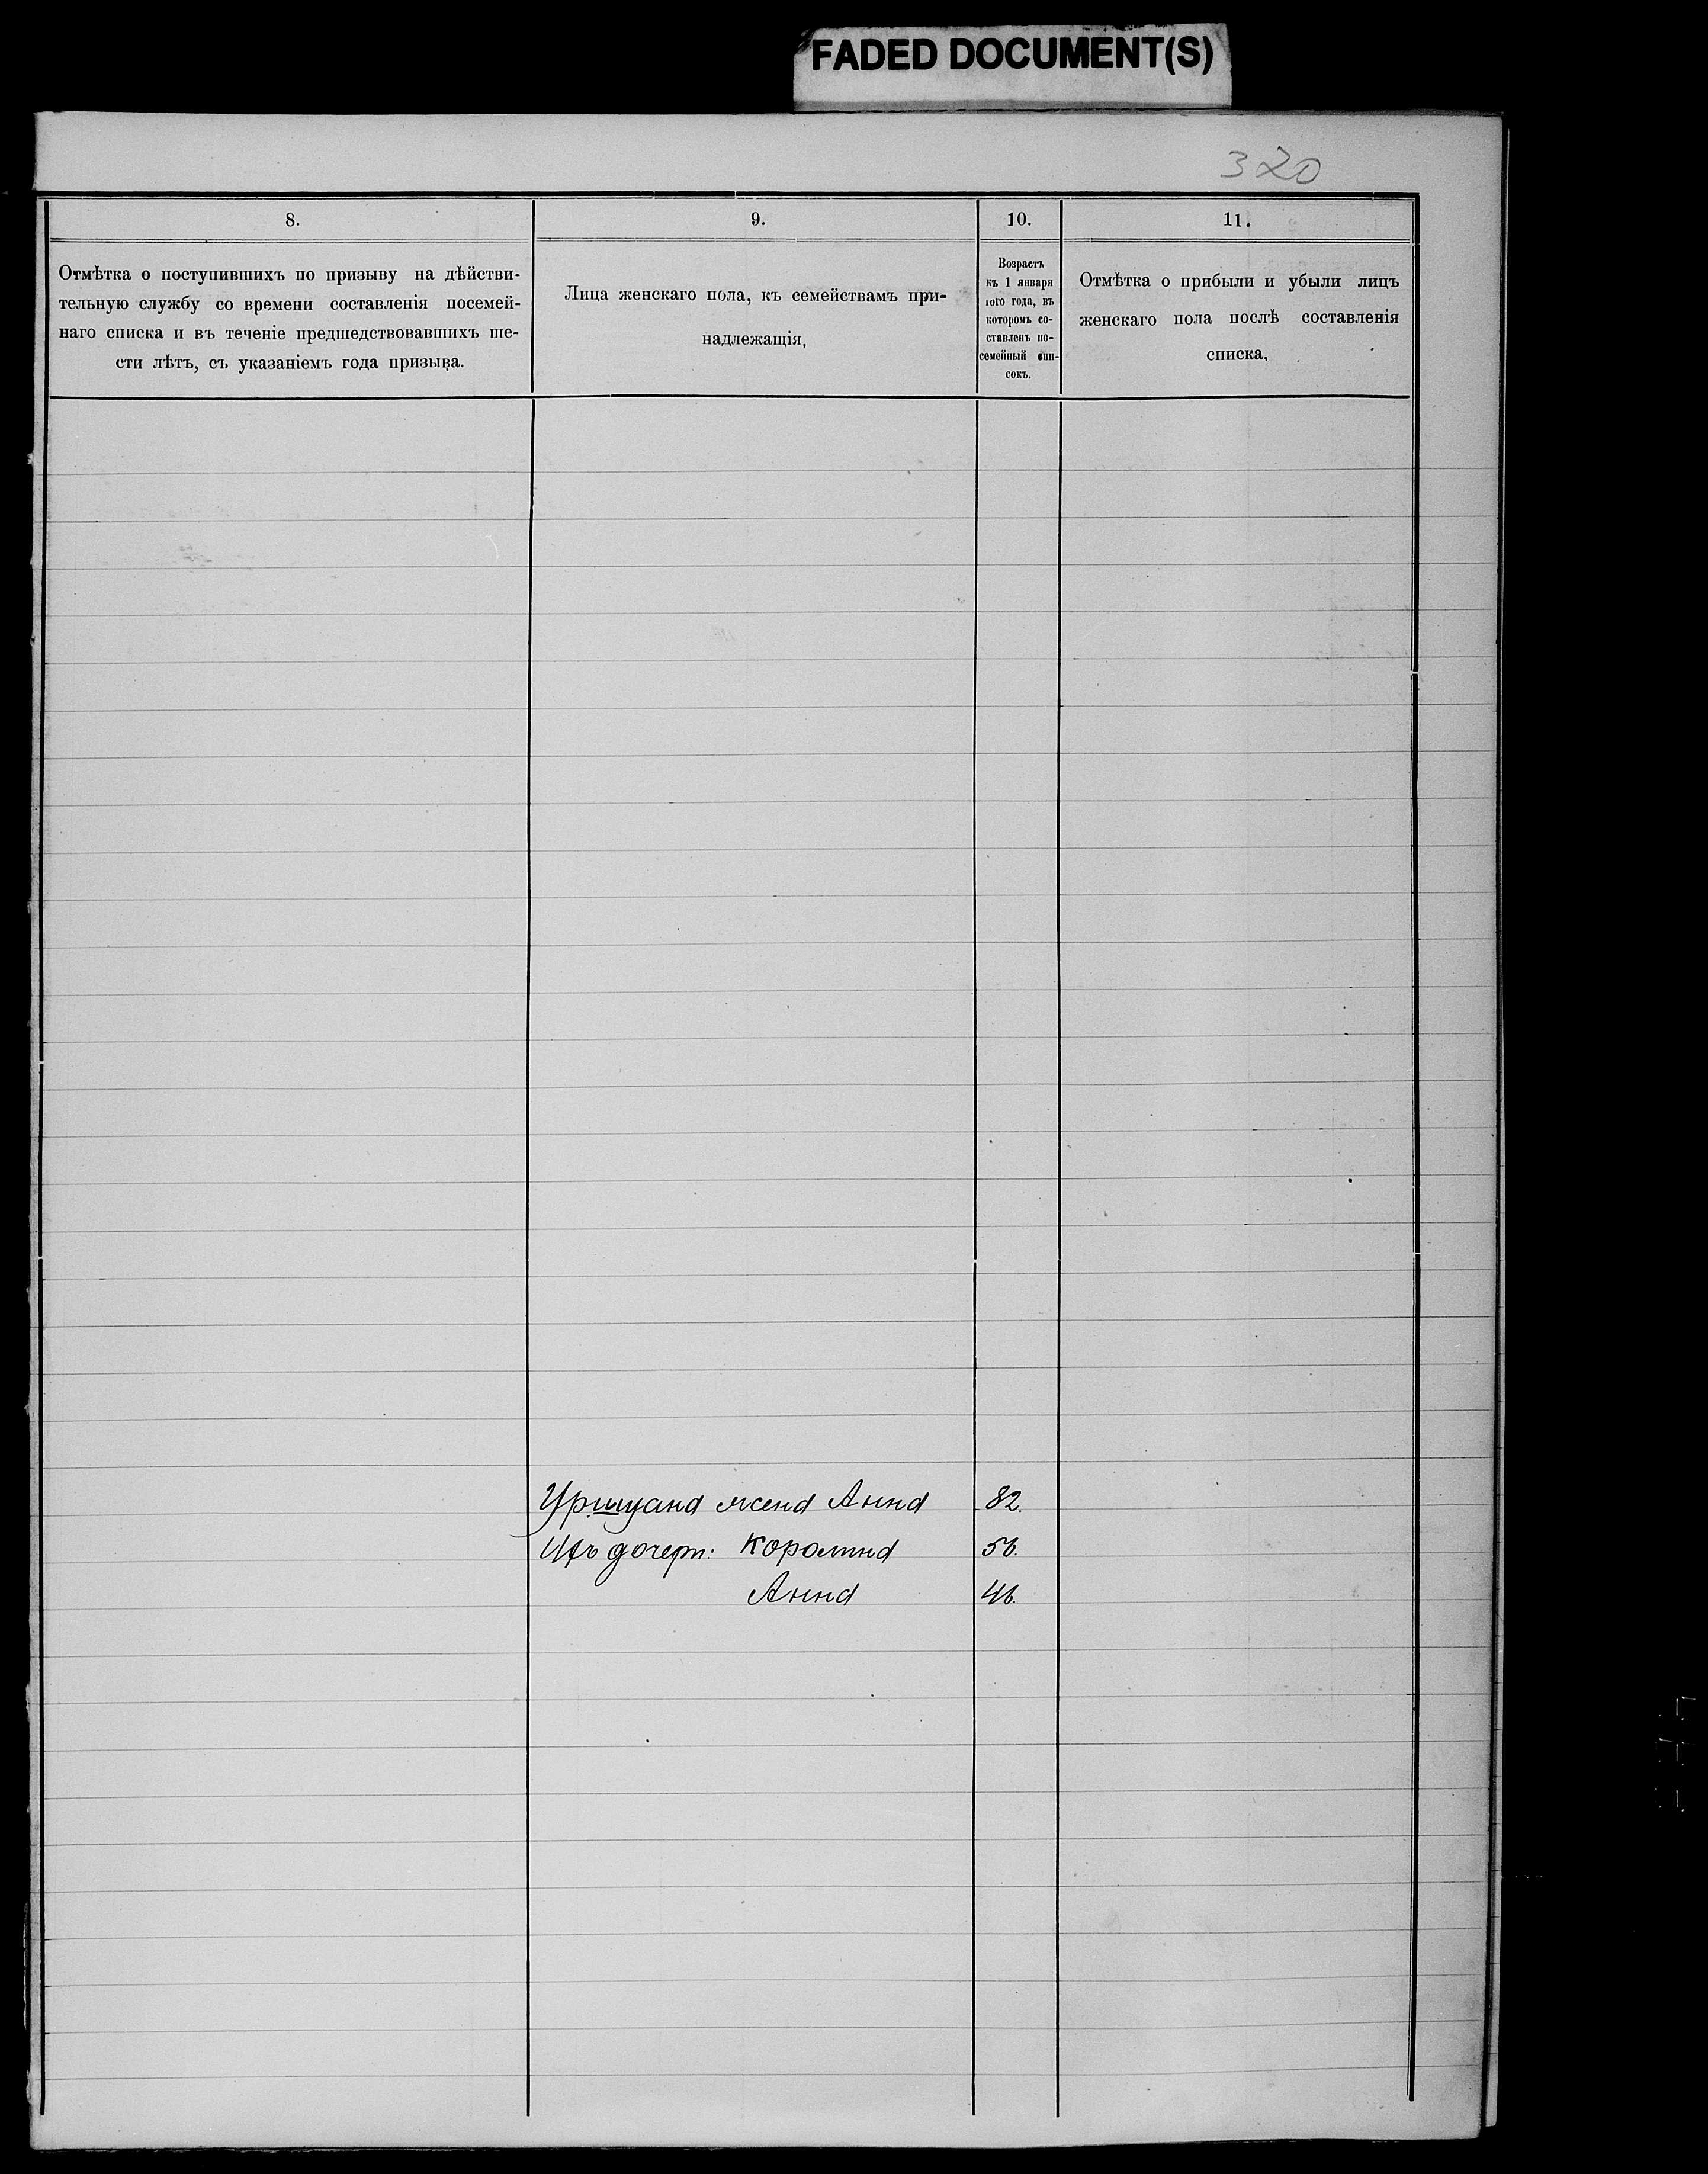 FADED DOCUMENT(S)
320
8.
9.
10.
11.
Отмѣтка о поступившихъ по призыву на дѣйстви-
тельную службу со времени составленія посемей-
наго списка и въ теченіе предшедствовавшихъ ше-
сти лѣтъ, съ указаніемъ года призыва.
Лица женскаго пола, къ семействамъ при-
надлежащія,
Возрастъ
къ 1 января
того года, въ
которомъ со-
ставленъ по-
семейный спи-
сокъ.
Отмѣтка о прибыли и убыли лицъ
женскаго пола послѣ составленія
списка,
жена Анна 82.
Ихъ дочери: Королина 56.
Анна 46.